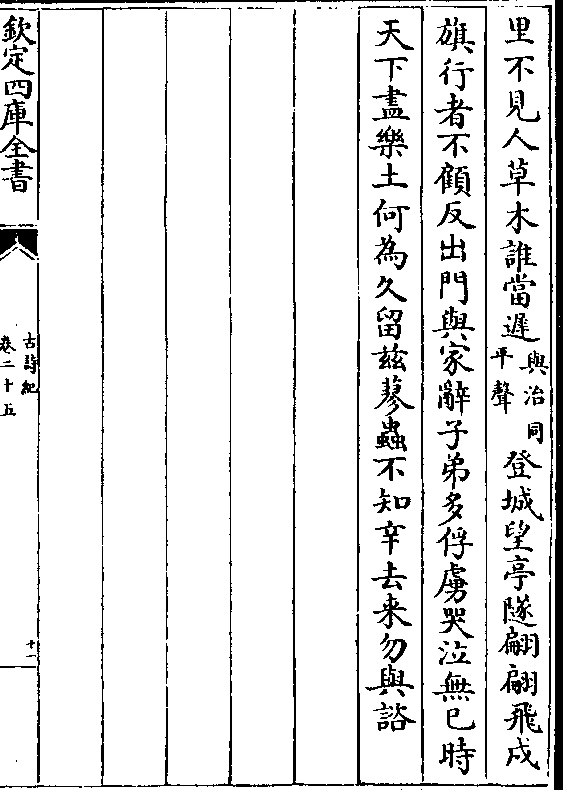 里不見人草木誰當遲與治同平聲登城望亭隧翩翩飛戍
旗行者不顧反出門與家辭子弟多俘虜哭泣無已時
天下盡樂土何為久留兹蓼蟲不知辛去来勿與諮
欽定四庫全書
古詩紀
卷二十五
十一